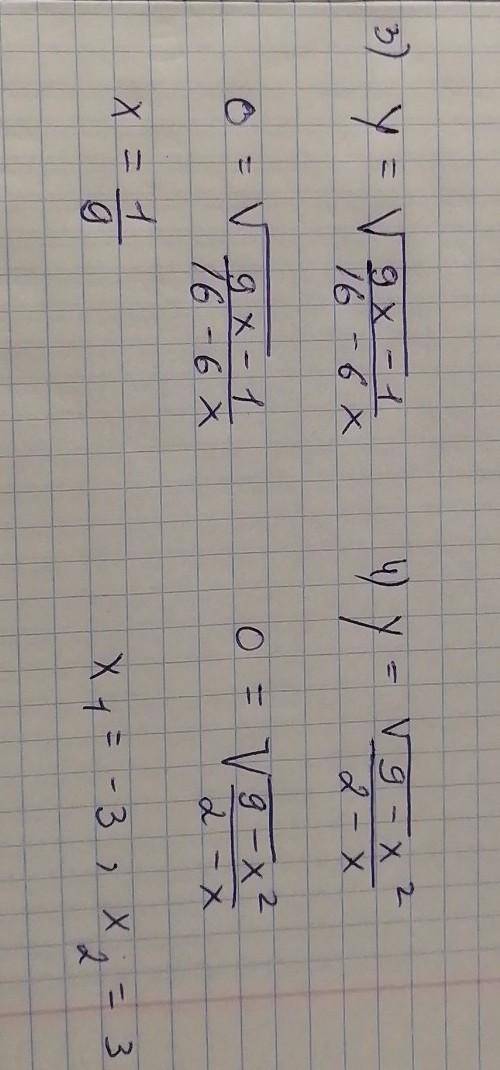 3) y = √(9x - 1) / (16 - 6x)
0 = √(9x - 1) / (16 - 6x)
x = 1/9
4) y = √(9 - x²) / (2 - x)
0 = √(9 - x²) / (2 - x)
x₁ = -3, x₂ = 3